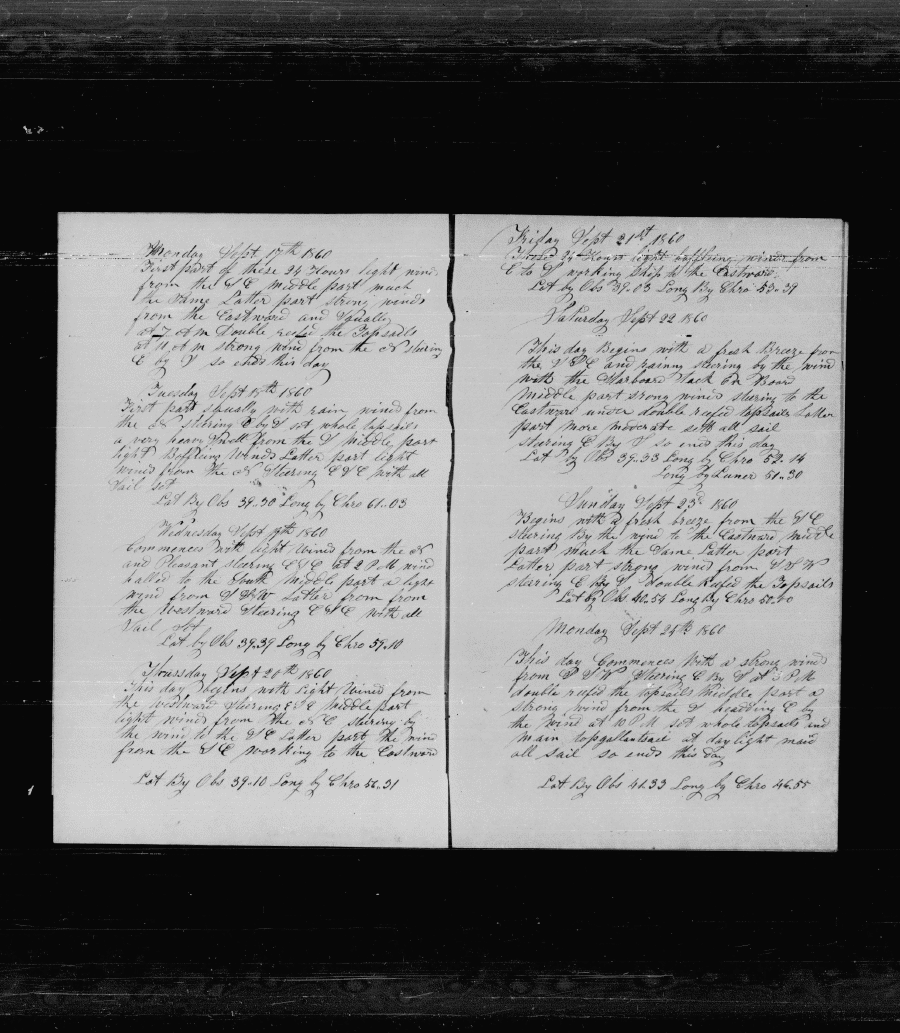 Monday Sept 17th 1860
First part of these 24 Hours light wind
from the S E Middle part much
the same Latter part strong winds
from the Eastward and Squally
at 7 A m Double reefed the Topsails
at 11 A m strong wind from the N steering
E by S so ends this day
Tuesday Sept 18th 1860
First part squally with rain wind from
the N steering E by S set whole topsails
a very heavy Swell from the S Middle part
light Baffling Winds Latter part light
winds from the N Steering E S E with all
Sail set
Lat By Obs 39..30 Long by Chro 61..03
Wednesday Sept 19th 1860
Commences with light Wind from the N
and Pleasant steering E S E at 2 P M wind
halled to the South Middle part a light
wind from S S W Latter from from
the Westward Steering E S E with all
Sail set
Lat by Obs 39..39 Long by Chro 59..10
Thursday Sept 20th 1860
This day begins with Light Wind from
the westward Steering E S E Middle part
light wind from the N E steering by
the wind to the S E Latter part the wind
from the S E working to the Eastward
Lat By Obs 39..10 Long by Chro 56..31
Friday Sept 21st 1860
These 24 Hours light baffling winds from
E to S working Ship to the Eastward
Lat by Obs 39..03 Long By Chro 53..39
Saturday Sept 22 1860
This day Begins with a fresh Breeze from
the S S E and rainy steering by the wind
with the Starboard Tack on Board
middle part strong wind steering to the
Eastward under double reefed topsails Latter
part more moderate set all sail
Steering E By S so ends this day
Lat by Obs 39..33 Long by Chro 52..14
Long by Luner 51..30
Sunday Sept 23d 1860
Begins with a fresh breeze from the S E
steering By the wind to the Eastward middle
part much the Same Latter part
Latter part strong wind from S S W
steering E By S Double Reefed the Topsails
Lat by Obs 40..54 Long by Chro 50..00
Monday Sept 24th 1860
This day Commences With a strong wind
from S S W Steering E By S at 3 P M
double reefed the topsails Middle part a
strong wind from the S heading E by
the Wind at 10 P M set whole topsails and
main topgallantsail at daylight maid
all sail so ends this day
Lat By Obs 41..33 Long by Chro 46..55